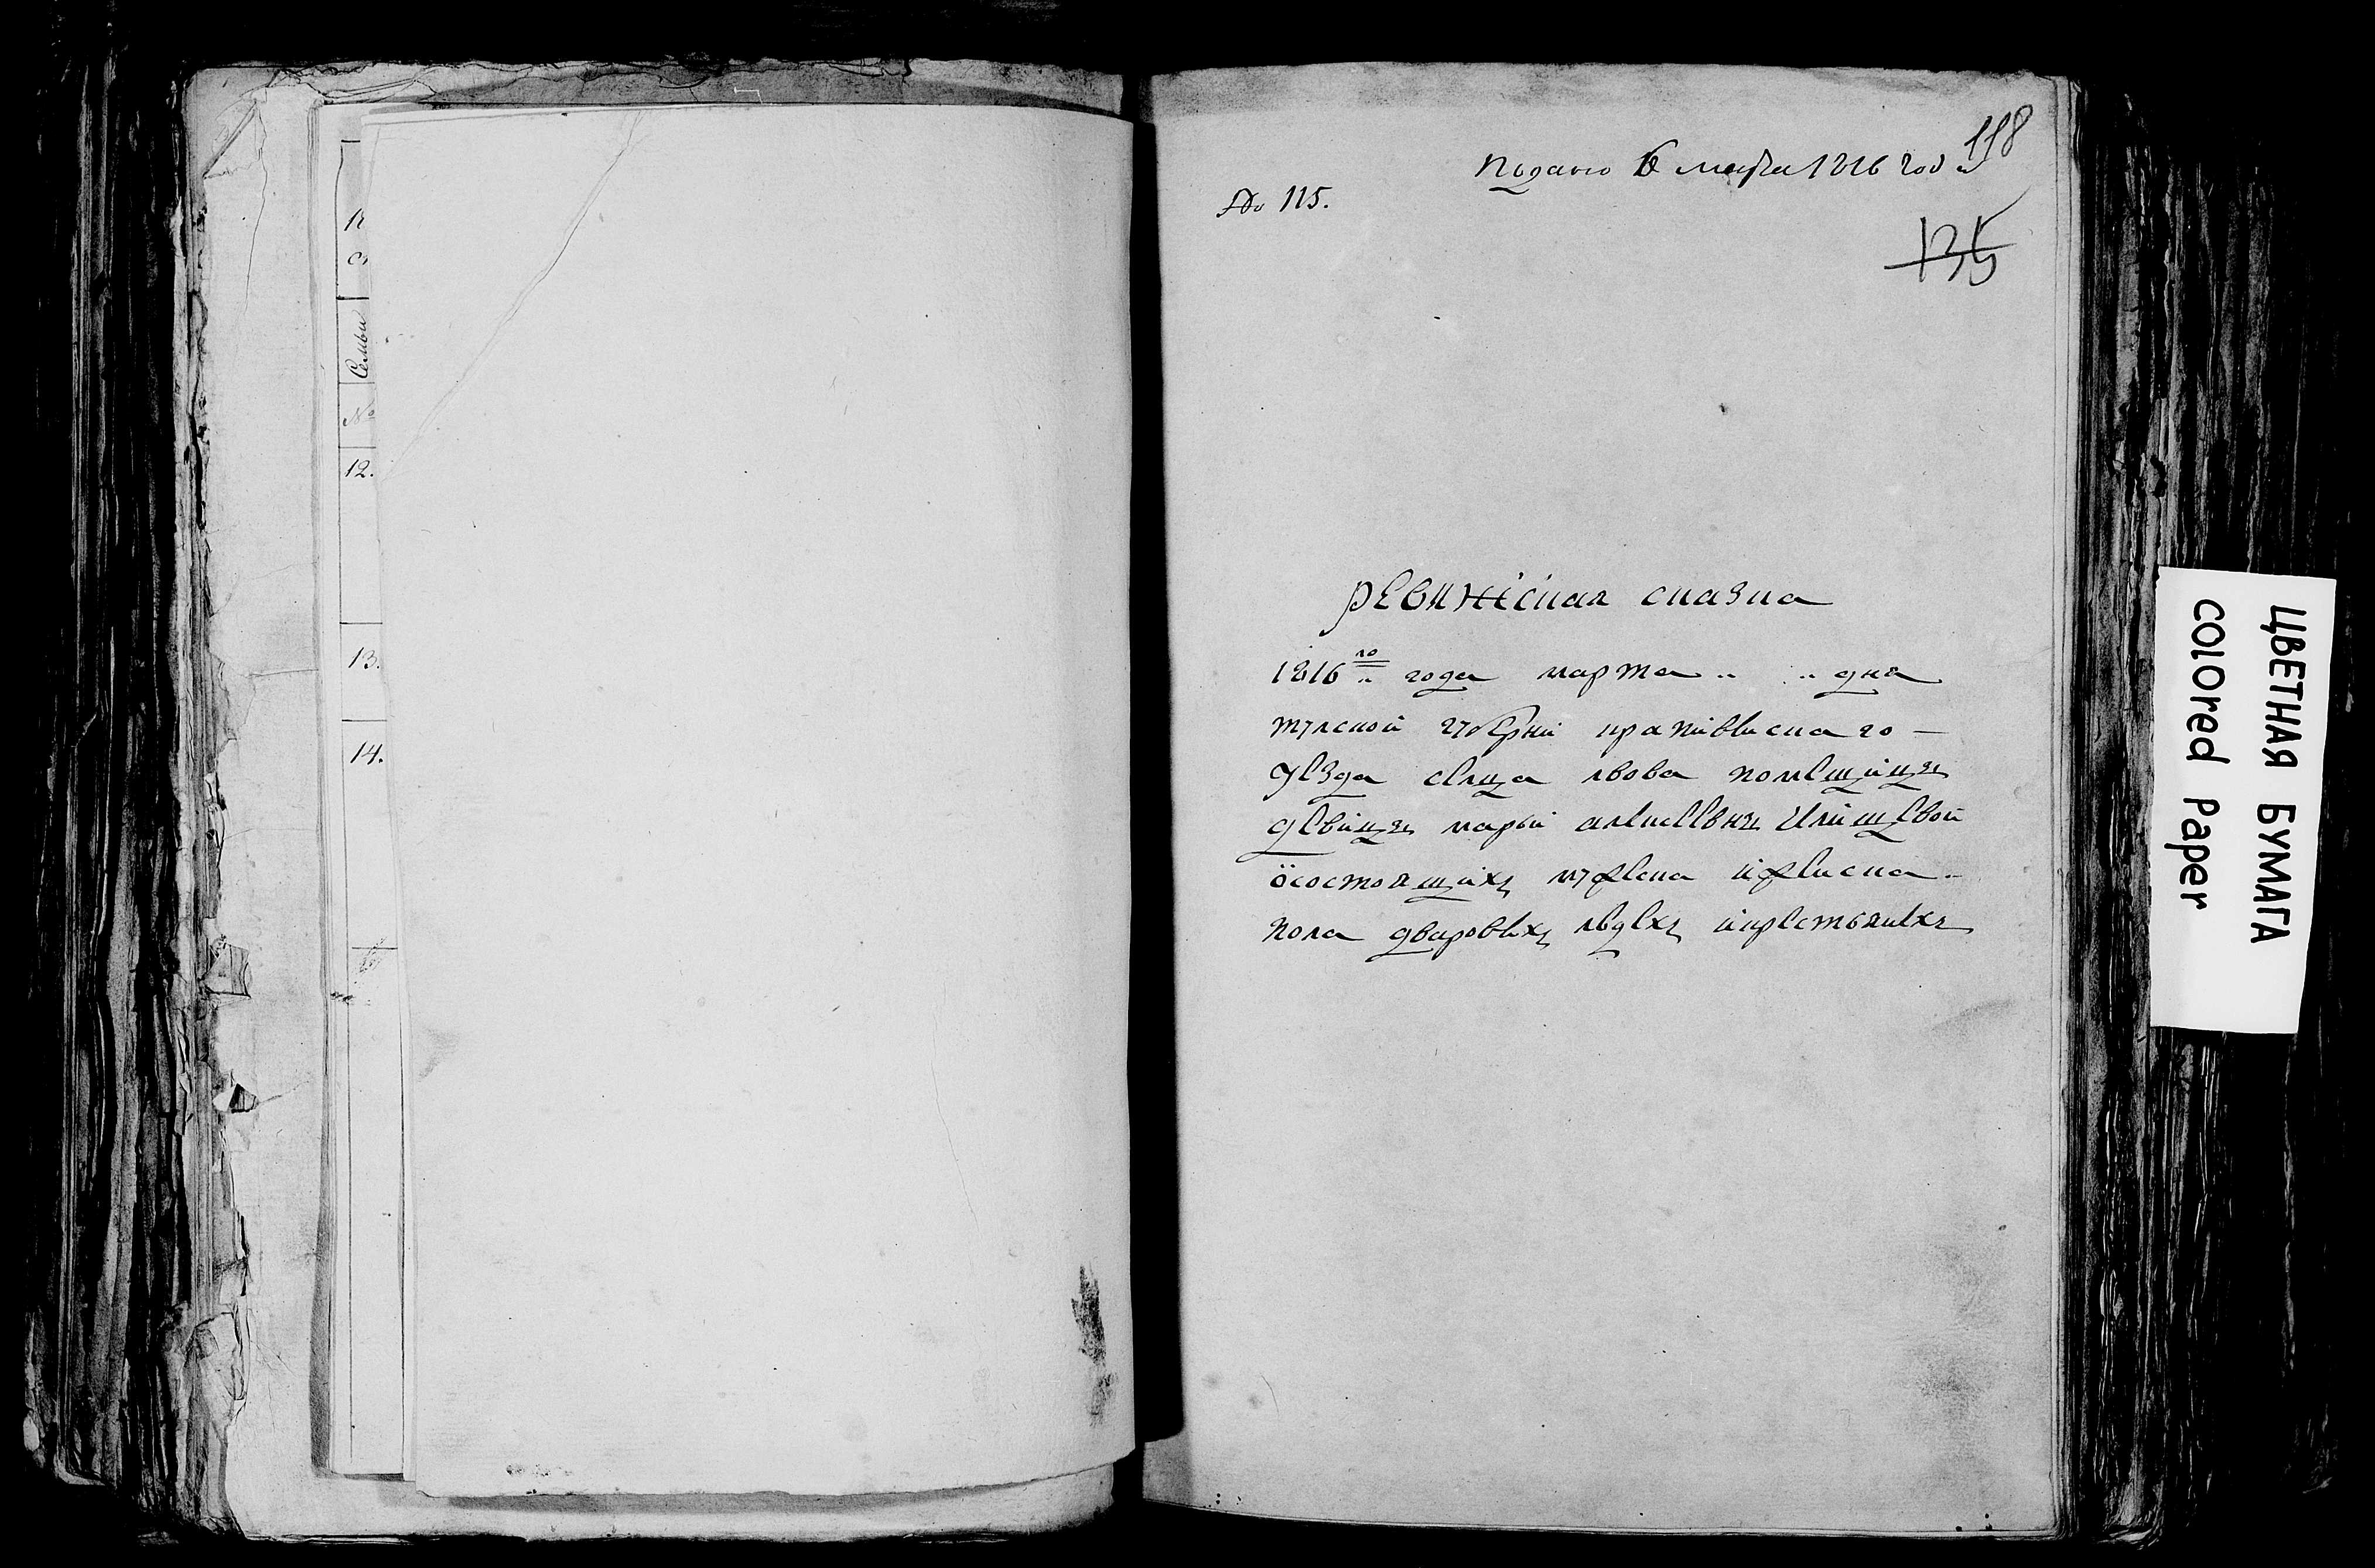 К
с
Семьи
№
12.
13.
14.
118
Подано 6 марта 1816 года
№ 115.
135
ревижская сказка
1816го года марта дня
тулской губерни крапивенскаго
уезда селца лвова помещицы
девицы марьи алексеевны
осостоящихъ мужеска иженска
пола дваровыхъ людехъ икрестьянехъ
ЦВЕТНАЯ БУМАГА
Colored Paper